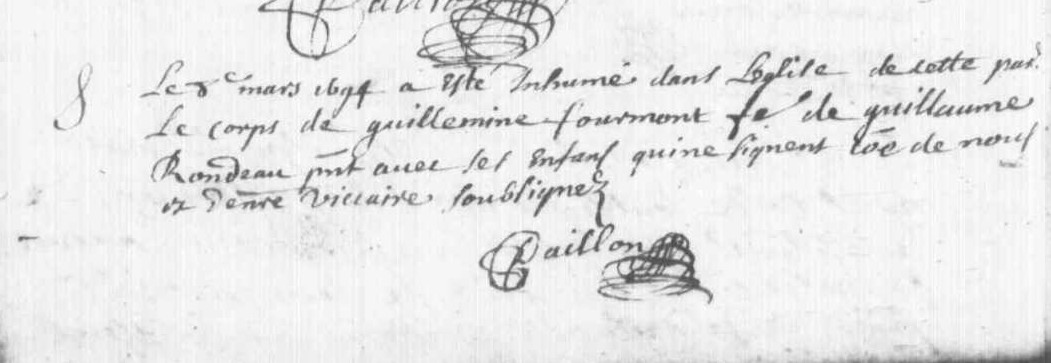 Paillon
8
Le 8e mars 1694 a Esté Inhumé dans Leglise de cette par.
Le corps de guillemine fourmont fe de guillaume
Rondeau pnt avec ses Enfans qui ne signent de nous
vicaire soubsigné
Paillon